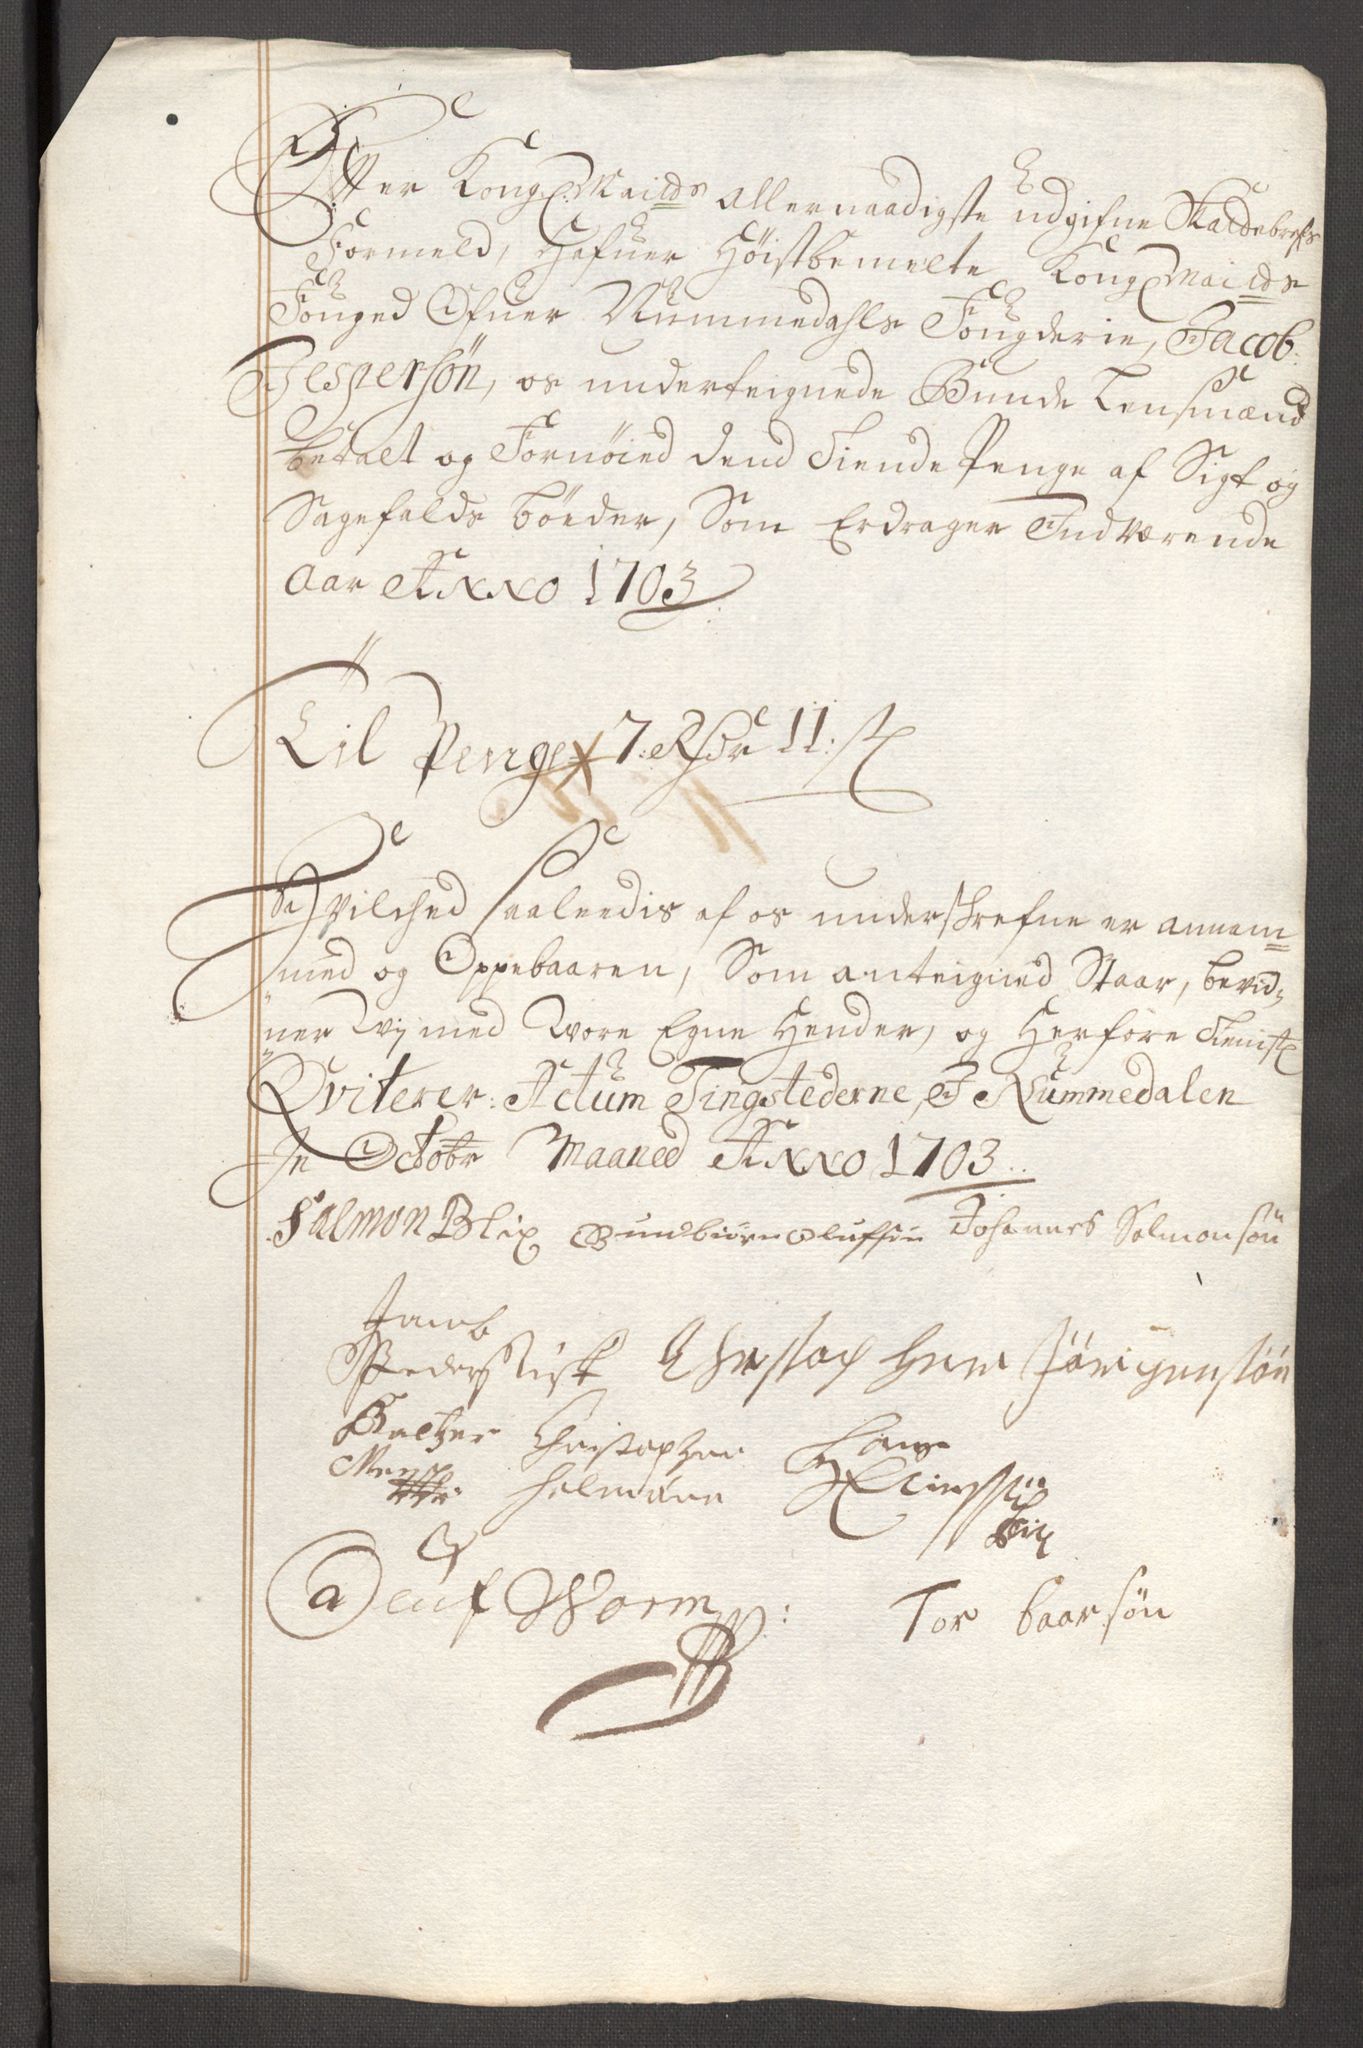 Efter Kongl: Maitds allernaadigste udgifne Skattebrefs
Formeld, hafuer Høistbemelte Kongl Maitds
Fouged Ofuer Nummedahls Fougderie, Jacob
Jespersøn, os underteignede Bunde Lensmænd
betalt og Fornøied dend tiende Penge af Sigt og
Sagefalds bøeder, Som Erdrager Indværende
Aar Anno 1703
Til Penge 7: Rdr 11: s
Hvilched saaleedis af os underschrefne er annam=
med og Oppebaaren, Som anteigned Staar, bevid=
ner Wj med Wore Egne Hender, og Herfore tienistl
Qviterer. Actum Tingstederne I Nummedalen
In Octobr Maaned Anno 1703
Salmon Blix Gundbiørn Oluffsøn Johannes Solmonsøn
Jacob
Pedersen Fisk Christopher Jørrigensøn
Baltzer Christopher Hans
Mentz Helmana
Oeluf Worm: Tor baarsøn